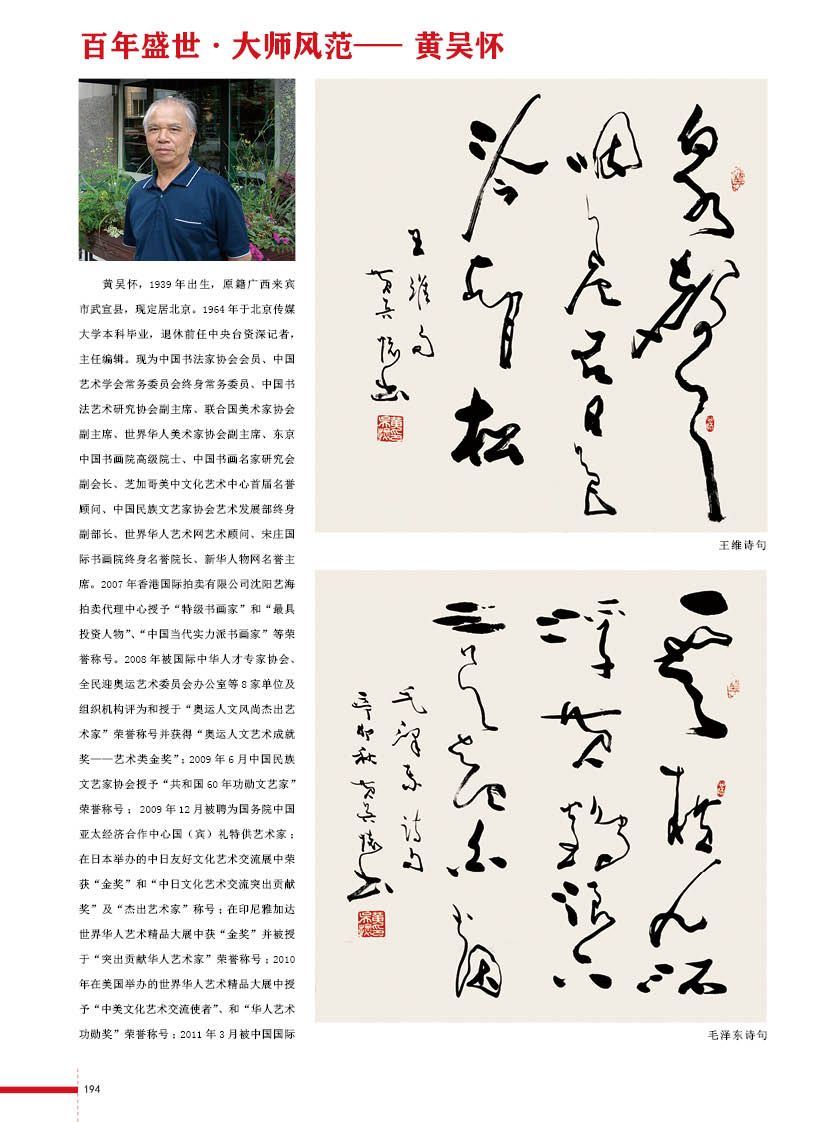 百年盛世·大师风范—— 黄吴怀
黄吴怀，1939 年出生，原籍广西来宾
市武宣县，现定居北京。1964 年于北京传媒
大学本科毕业，退休前任中央台资深记者，
主任编辑。现为中国书法家协会会员、中国
艺术学会常务委员会终身常务委员、中国书
法艺术研究协会副主席、联合国美术家协会
副主席、世界华人美术家协会副主席、东京
中国书画院高级院士、中国书画名家研究会
副会长、芝加哥美中文化艺术中心首届名誉
顾问、中国民族文艺家协会艺术发展部终身
副部长、世界华人艺术网艺术顾问、宋庄国
际书画院终身名誉院长、新华人物网名誉主
席。2007 年香港国际拍卖有限公司沈阳艺海
拍卖代理中心授予“特级书画家”和“最具
投资人物”、“中国当代实力派书画家”等荣
誉称号。2008 年被国际中华人才专家协会、
全民迎奥运艺术委员会办公室等 8 家单位及
组织机构评为和授于“奥运人文风尚杰出艺
术家”荣誉称号并获得“奥运人文艺术成就
奖——艺术类金奖”；2009 年 6 月中国民族
文艺家协会授予“共和国 60 年功勋文艺家”
荣誉称号；2009 年 12 月被聘为国务院中国
亚太经济合作中心国（宾）礼特供艺术家；
在日本举办的中日友好文化艺术交流展中荣
获“金奖”和“中日文化艺术交流突出贡献
奖”及“杰出艺术家”称号；在印尼雅加达
世界华人艺术精品大展中获“金奖”并被授
于“突出贡献华人艺术家”荣誉称号；2010
年在美国举办的世界华人艺术精品大展中授
予“中美文化艺术交流使者”、和“华人艺术
功勋奖”荣誉称号；2011 年 3 月被中国国际
泉声
咽危石日色
冷青松
王维句
黄吴怀书
王维诗句
毛泽东诗句
黄吴怀书
毛泽东诗句
194